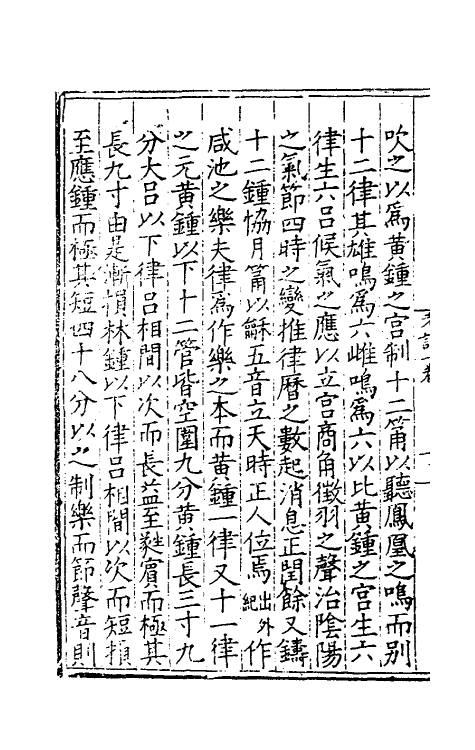 吹之以爲黄鍾之宫制十二筩以聽鳳凰之鳴而别
十二律其雄鳴爲六雌鳴爲六以比黄鍾之宫生六
律生六吕候氣之應以立宫商角徵羽之聲治隂陽
之氣節四時之變推律暦之數起消息正閏餘又鑄
十二鍾恊月筩以龢五音立天時正人位焉出外紀作
咸池之樂夫律爲作樂之本而黄鍾一律又十一律
之元黄鍾以下十二管皆空圍九分黄鍾長三寸九
分大吕以下律吕相間以次而長益至蕤賔而極其
長九寸由是漸損林鍾以下律吕相間以次而短損
至應鍾而極其短四寸八分以之制樂而節聲音則